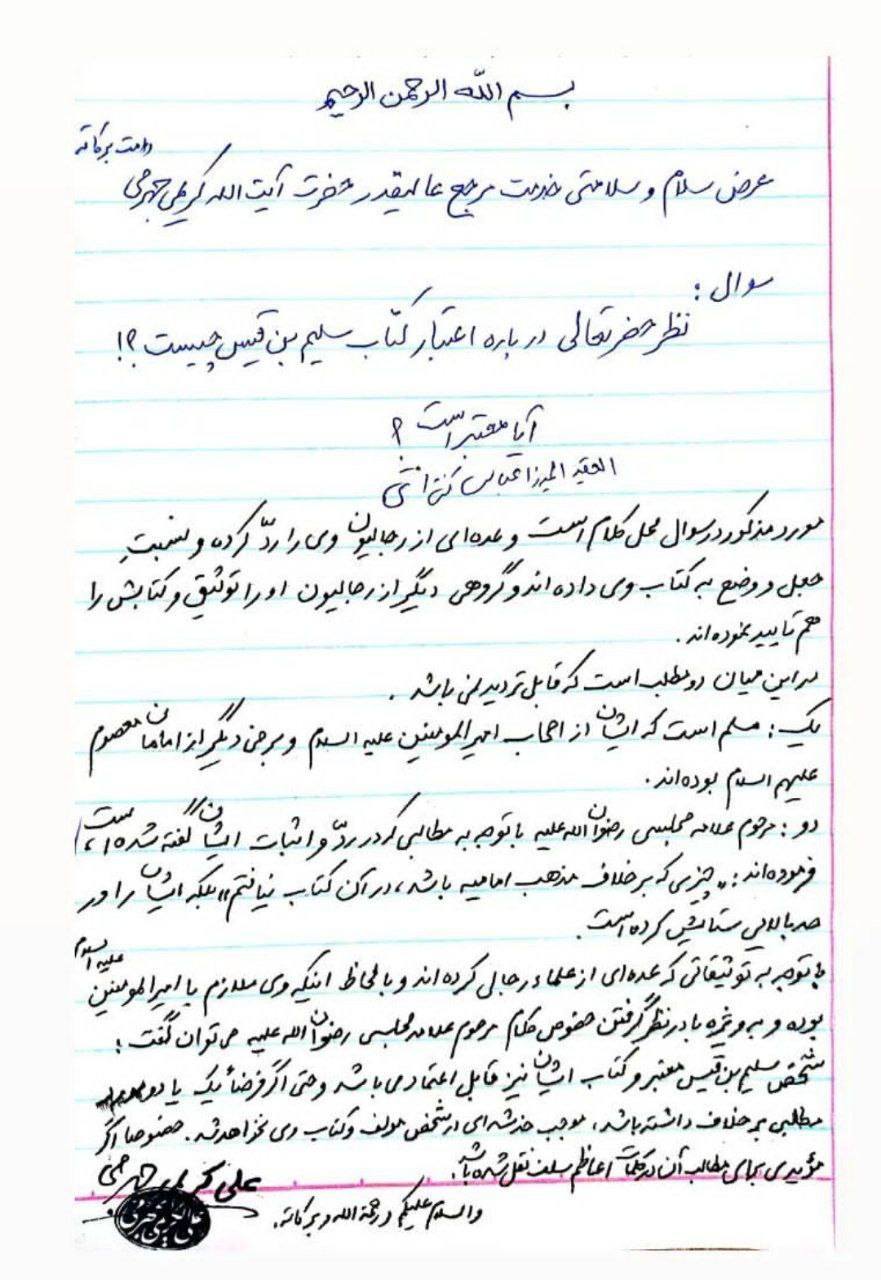 بسم الله الرحمن الرحیم
دامت برکاته
عرض سلام و سلامتی خدمت مرجع عالیقدر حضرت آیت الله کریمی جهرمی
سوال :
نظر حضرتعالی درباره اعتبار کتاب سلیم بن قیس چیست ؟!
آیا معتبر است ؟
الحقیر المیرزا عباس
مورد مذکور در سوال محل کلام است و عده‌ای از رجالیون وی را ردّ کرده و نسبتِ
جعل و وضع به کتاب وی داده اند و گروهی دیگر از رجالیون او را توثیق و کتابش را
هم تایید نموده اند .
در این میان دو مطلب است که قابل تردید نمی باشد .
یک : مسلم است که ایشان از اصحاب امیرالمومنین علیه السلام و برخی دیگر از امامان معصوم
علیهم السلام بوده اند .
دو : مرحوم علامه مجلسی رضوان الله علیه با توجه به مطالبی که در ردّ و اثبات ایشان گفته شده است ،
فرموده اند : «چیزی که بر خلاف مذهب امامیه باشد ، در آن کتاب نیافتم» بلکه ایشان را در
حد بالایی ستایش کرده است .
با توجه به توثیقاتی که عده‌ای از علماء رجالی کرده اند و با لحاظ اینکه وی ملازم با امیرالمومنین علیه السلام
بوده و به ویژه با در نظر گرفتن خصوص کلام مرحوم علامه مجلسی رضوان الله علیه می توان گفت :
شخص سلیم بن قیس معتبر و کتاب ایشان نیز قابل اعتماد می باشد و حتی اگر فرضاً یک یا دو
مطلبی بر خلاف داشته باشد ، موجب خدشه‌ای در شخص مولف و کتاب وی نخواهد شد . خصوصا اگر
مؤیدی بجای مطالب آن در کلمات اعاظم سلف نقل شده باشد .
علی کریمی جهرمی
والسلام علیکم و رحمة الله و برکاته .